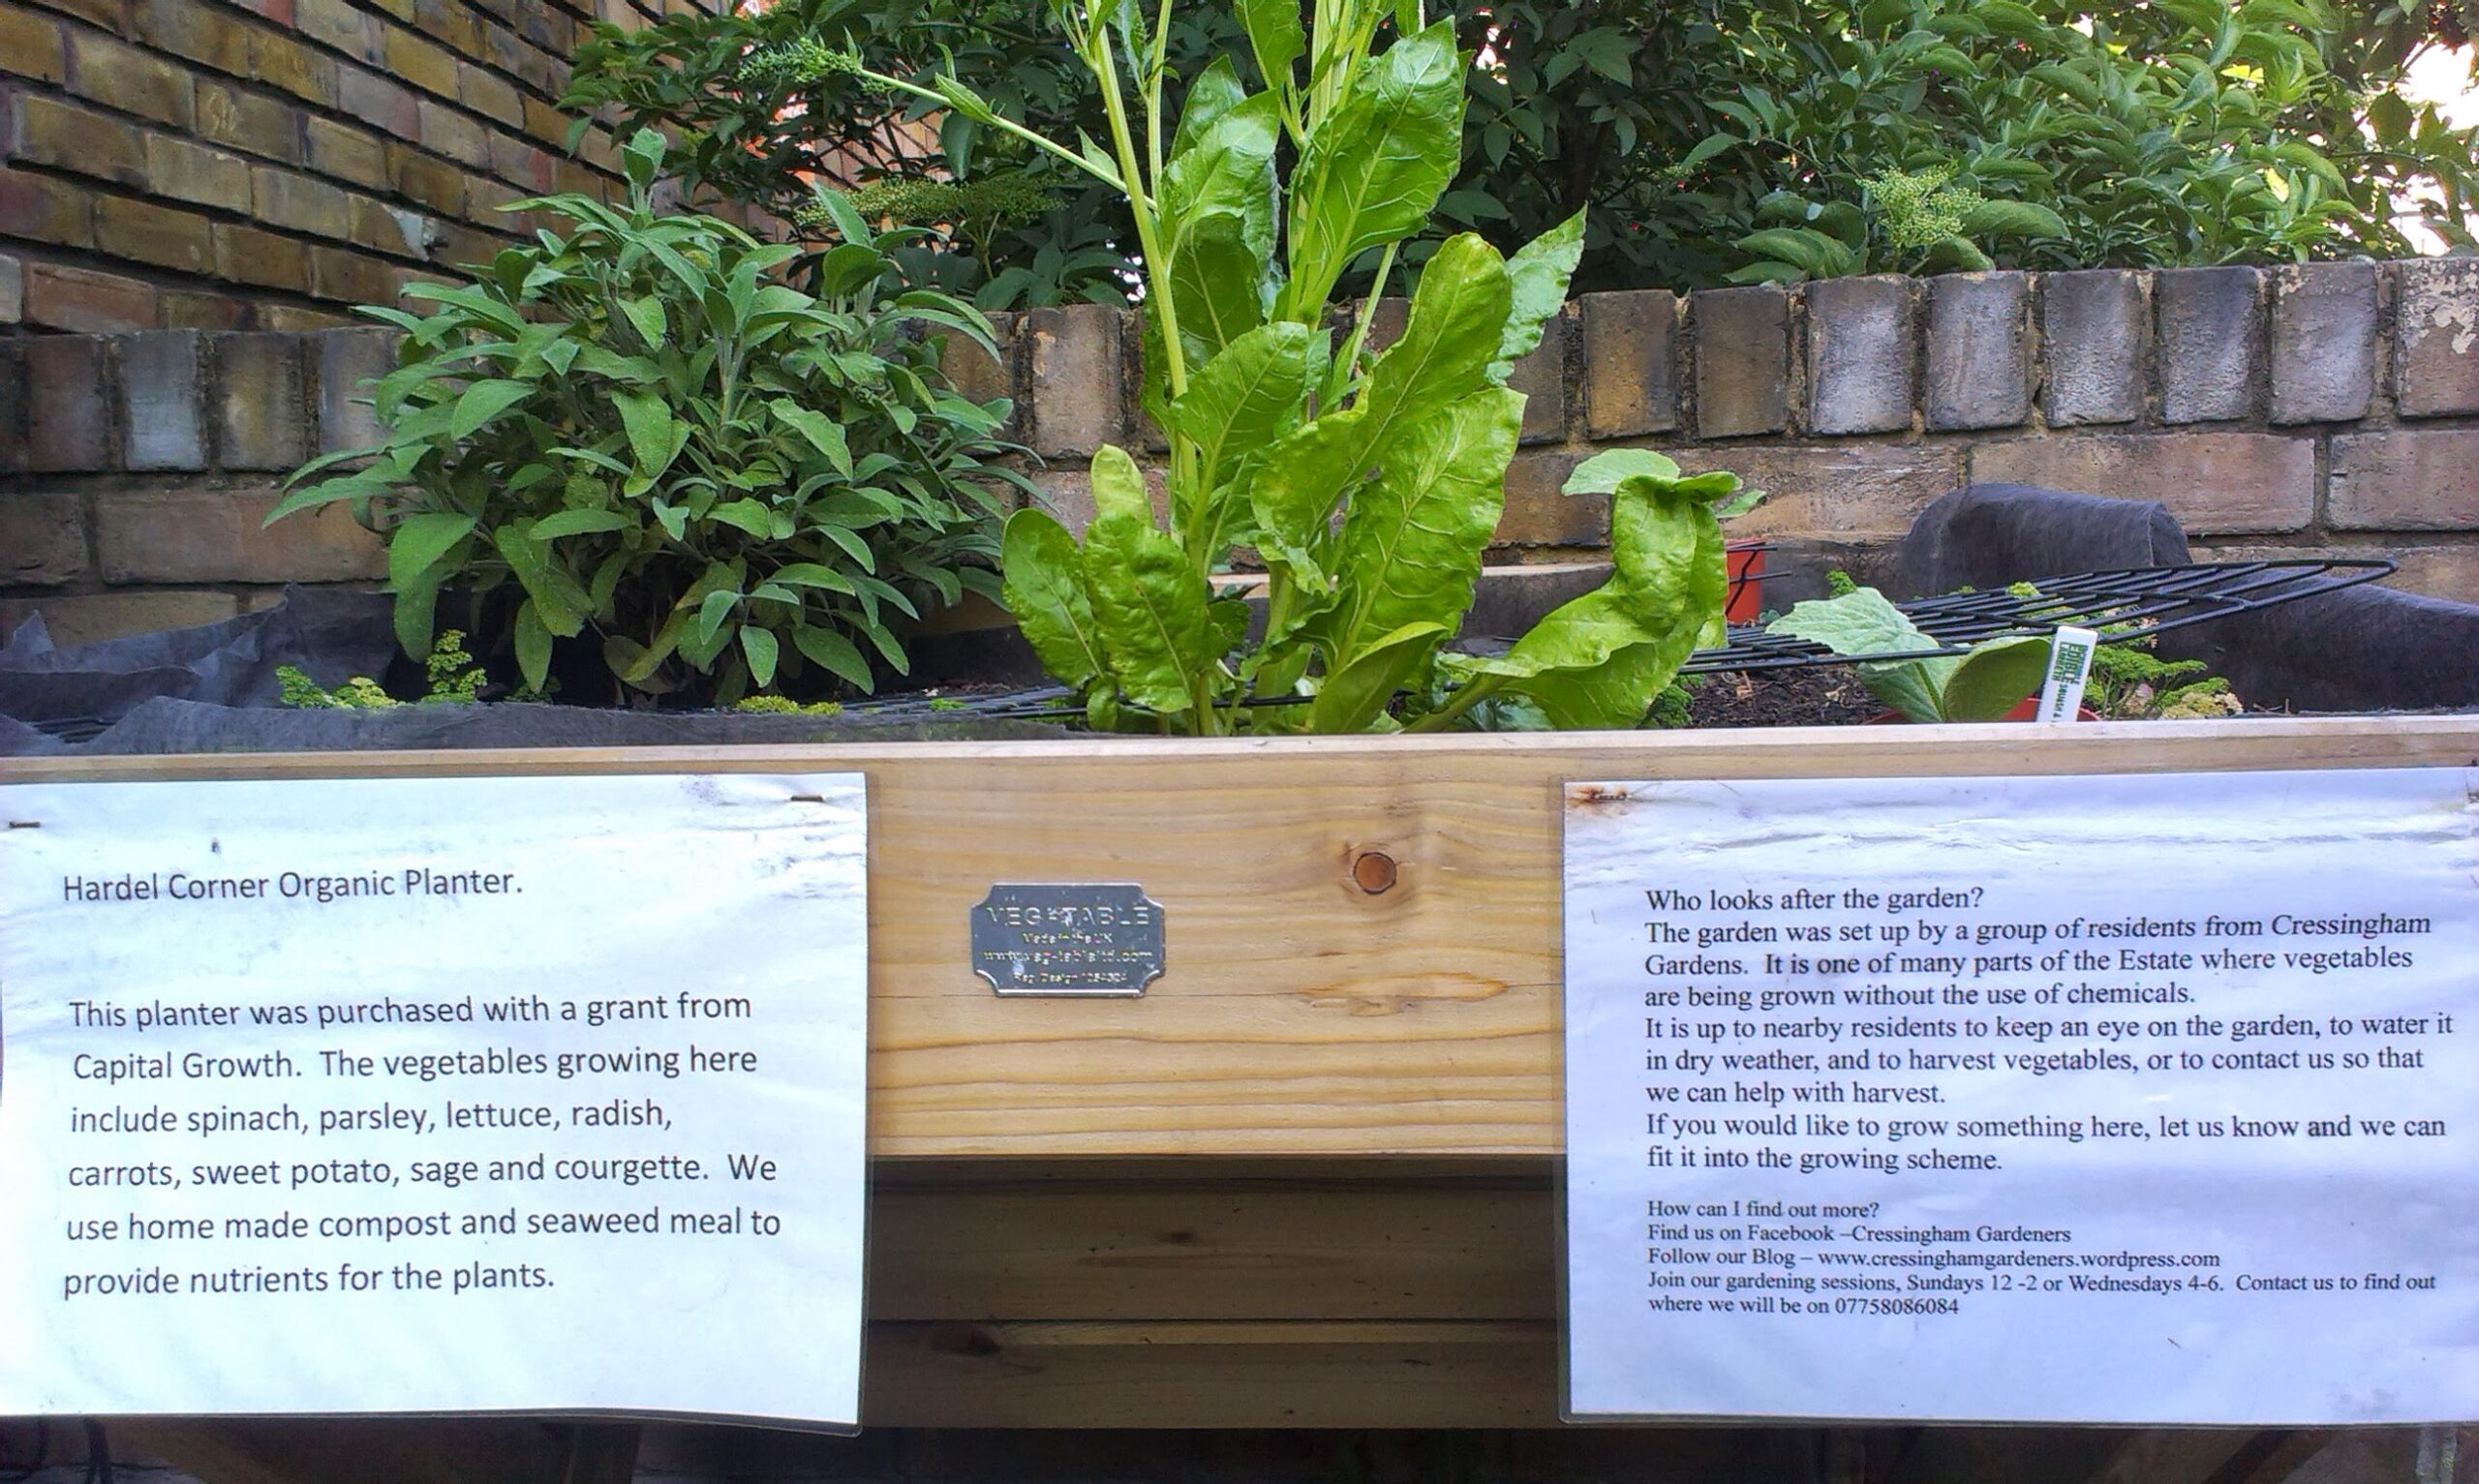 Hardel Corner Organic Planter.
This planter was purchased with a grant from
Capital Growth.  The vegetables growing here
include spinach, parsley, lettuce, radish,
carrots, sweet potato, sage and courgette.  We
use home made compost and seaweed meal to
provide nutrients for the plants.
VEG-TABLE
Made in the UK
Who looks after the garden?
The garden was set up by a group of residents from Cressingham
Gardens.  It is one of many parts of the Estate where vegetables
are being grown without the use of chemicals.
It is up to nearby residents to keep an eye on the garden, to water it
in dry weather, and to harvest vegetables, or to contact us so that
we can help with harvest.
If you would like to grow something here, let us know and we can
fit it into the growing scheme.
How can I find out more?
Find us on Facebook –Cressingham Gardeners
Follow our Blog – www.cressinghamgardeners.wordpress.com
Join our gardening sessions, Sundays 12 -2 or Wednesdays 4-6.  Contact us to find out
where we will be on 07758086084
EDIBLE
SQUASH &